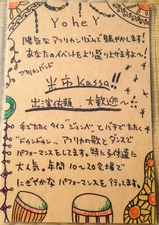 YoheY
陽気なアフリカンリズムで賑やかします!
あなたのイベントをより盛り上げますよ〜!
アフリカンバンド
米市kassa!!
出演依頼 大歓迎〜
手でたたくタイコ"ジェンベ"とバチでたたく
"ドゥンドゥン"、アフリカの歌とダンスで
パフォーマンスをしてます。特に子供達に
大人気。年間10〜20本場で
にぎやかなパフォーマンスを行ってます。